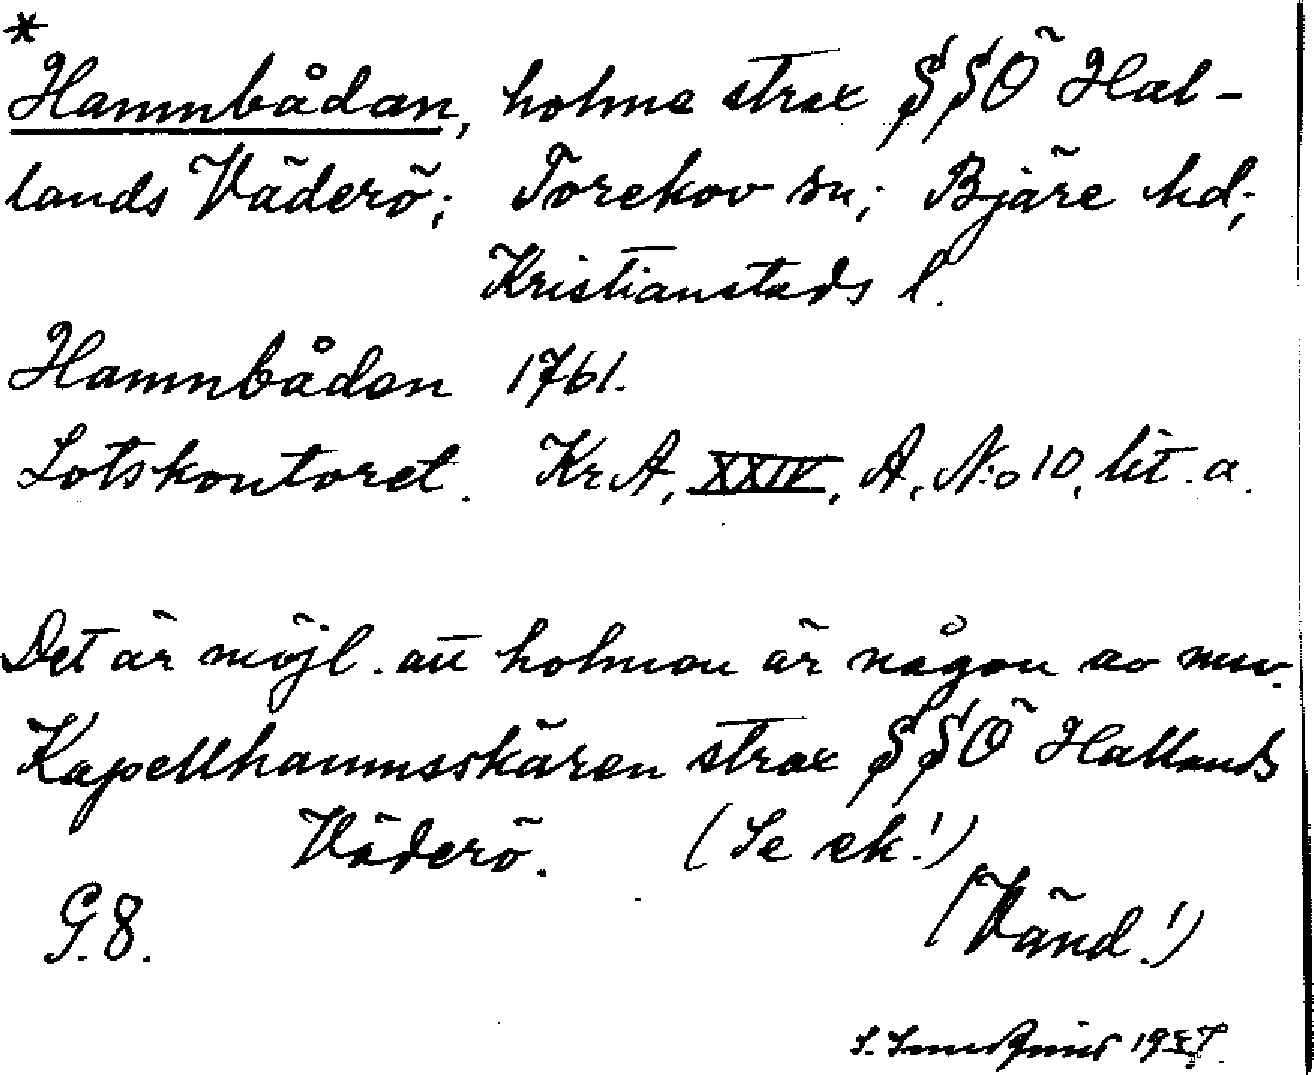 *
Hamnbådan, holme strax SSÖ Hal-
lands Väderö; Torekov sn; Bjäre hd;
Kristianstads l.
Hamnbåden 1761.
Lotskontoret. KrA, XXIV, A, N:o 10, lit. a.
Det är möjl. att holmen är någon av nuv.
Kapellhamnsskären strax SSÖ Hallands
Väderö. (Se ek!)
G.8. (Vänd!)
S. 19